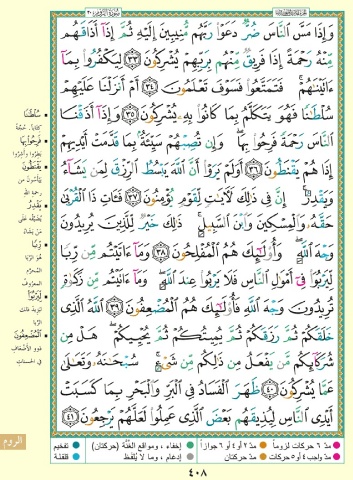 سورة الروم ٣٠
وَإِذَا مَسَّ ٱلنَّاسَ ضُرٌّ دَعَوْا۟ رَبَّهُم مُّنِيبِينَ إِلَيْهِ ثُمَّ إِذَآ أَذَاقَهُم
مِّنْهُ رَحْمَةً إِذَا فَرِيقٌ مِّنْهُم بِرَبِّهِمْ يُشْرِكُونَ ٣٣ لِيَكْفُرُوا۟ بِمَآ
ءَاتَيْنَٰهُمْ ۚ فَتَمَتَّعُوا۟ فَسَوْفَ تَعْلَمُونَ ٣٤ أَمْ أَنزَلْنَا عَلَيْهِمْ
سُلْطَٰنًا فَهُوَ يَتَكَلَّمُ بِمَا كَانُوا۟ بِهِۦ يُشْرِكُونَ ٣٥ وَإِذَآ أَذَقْنَا
ٱلنَّاسَ رَحْمَةً فَرِحُوا۟ بِهَا ۖ وَإِن تُصِبْهُمْ سَيِّئَةٌۢ بِمَا قَدَّمَتْ أَيْدِيهِمْ
إِذَا هُمْ يَقْنَطُونَ ٣٦ أَوَلَمْ يَرَوْا۟ أَنَّ ٱللَّهَ يَبْسُطُ ٱلرِّزْقَ لِمَن يَشَآءُ
وَيَقْدِرُ ۚ إِنَّ فِى ذَٰلِكَ لَءَايَٰتٍ لِّقَوْمٍ يُؤْمِنُونَ ٣٧ فَـَٔاتِ ذَا ٱلْقُرْبَىٰ
حَقَّهُۥ وَٱلْمِسْكِينَ وَٱبْنَ ٱلسَّبِيلِ ۚ ذَٰلِكَ خَيْرٌ لِّلَّذِينَ يُرِيدُونَ
وَجْهَ ٱللَّهِ ۖ وَأُو۟لَٰٓئِكَ هُمُ ٱلْمُفْلِحُونَ ٣٨ وَمَآ ءَاتَيْتُم مِّن رِّبًا
لِّيَرْبُوَا۟ فِىٓ أَمْوَٰلِ ٱلنَّاسِ فَلَا يَرْبُوا۟ عِندَ ٱللَّهِ ۖ وَمَآ ءَاتَيْتُم مِّن زَكَوٰةٍ
تُرِيدُونَ وَجْهَ ٱللَّهِ فَأُو۟لَٰٓئِكَ هُمُ ٱلْمُضْعِفُونَ ٣٩ ٱللَّهُ ٱلَّذِى
خَلَقَكُمْ ثُمَّ رَزَقَكُمْ ثُمَّ يُمِيتُكُمْ ثُمَّ يُحْيِيكُمْ ۖ هَلْ مِن
شُرَكَآئِكُم مَّن يَفْعَلُ مِن ذَٰلِكُم مِّن شَىْءٍ ۚ سُبْحَٰنَهُۥ وَتَعَٰلَىٰ
عَمَّا يُشْرِكُونَ ٤٠ ظَهَرَ ٱلْفَسَادُ فِى ٱلْبَرِّ وَٱلْبَحْرِ بِمَا كَسَبَتْ
أَيْدِى ٱلنَّاسِ لِيُذِيقَهُم بَعْضَ ٱلَّذِى عَمِلُوا۟ لَعَلَّهُمْ يَرْجِعُونَ ٤١
سُلْطَانًا
فَرِحُوا بِهَا
يَقْنَطُونَ
يَقْدِرُ
رِبًا
لِيَرْبُوَا
الْمُضْعِفُونَ
ذوو الأضعاف
في الحسنات
الروم
مدّ ٦ حركات لزوماً
مدّ ٢ أو ٤ أو ٦ جوازاً
إخفاء، ومواقع الغُنَّة (حركتان)
تفخيم
مدّ واجب ٤ أو ٥ حركات
مدّ حركتان
إدغام، وما لا يُلفظ
قلقلة
٤٠٨